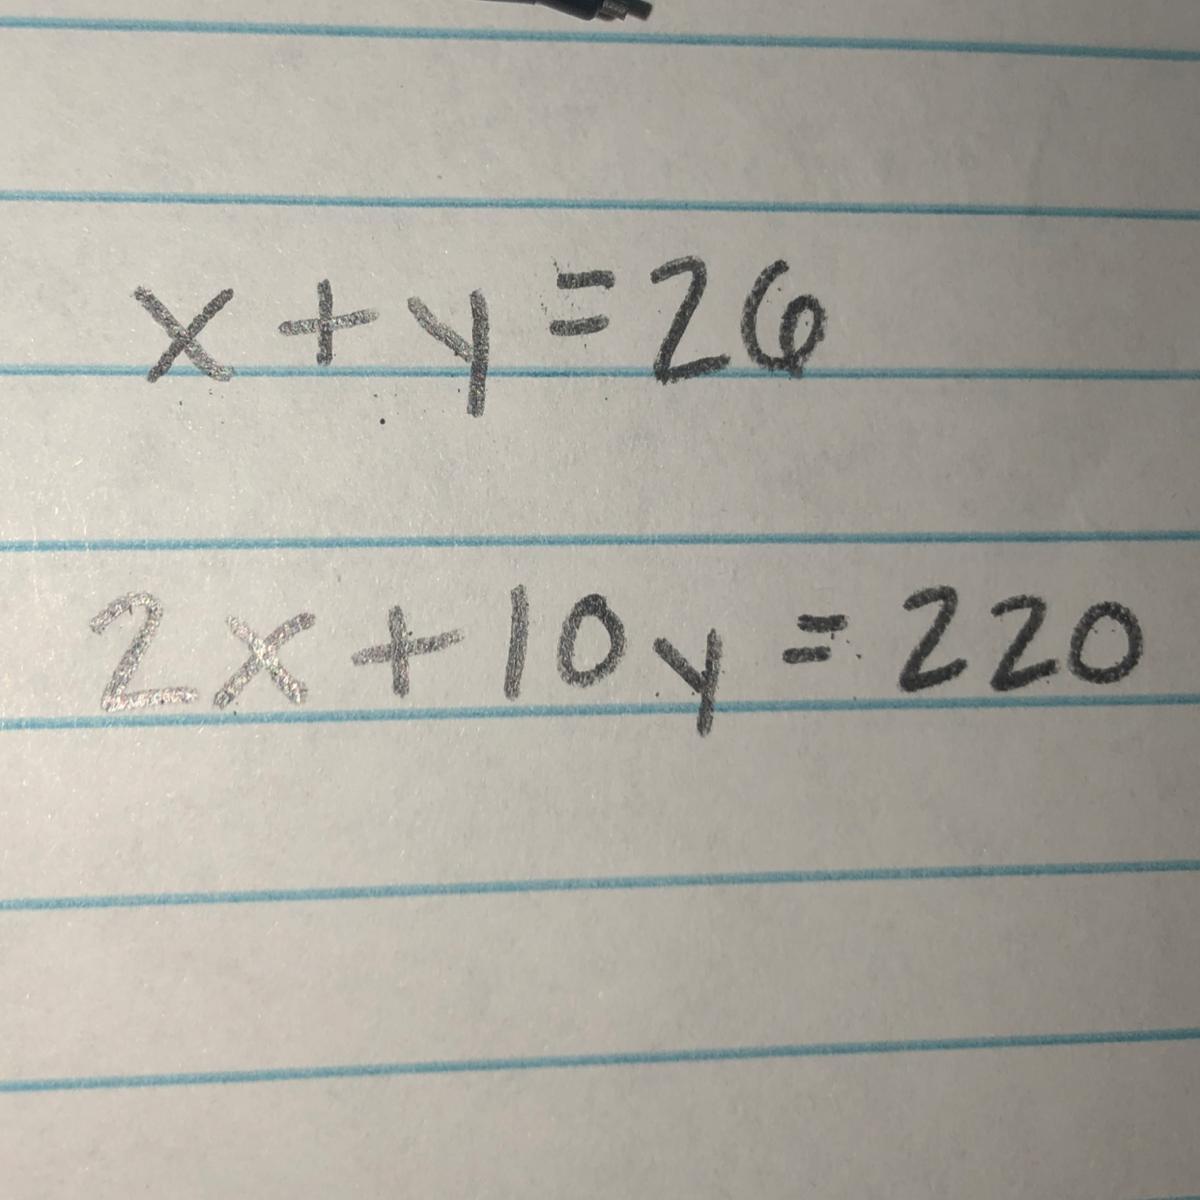 x + y = 26
2x + 10y = 220